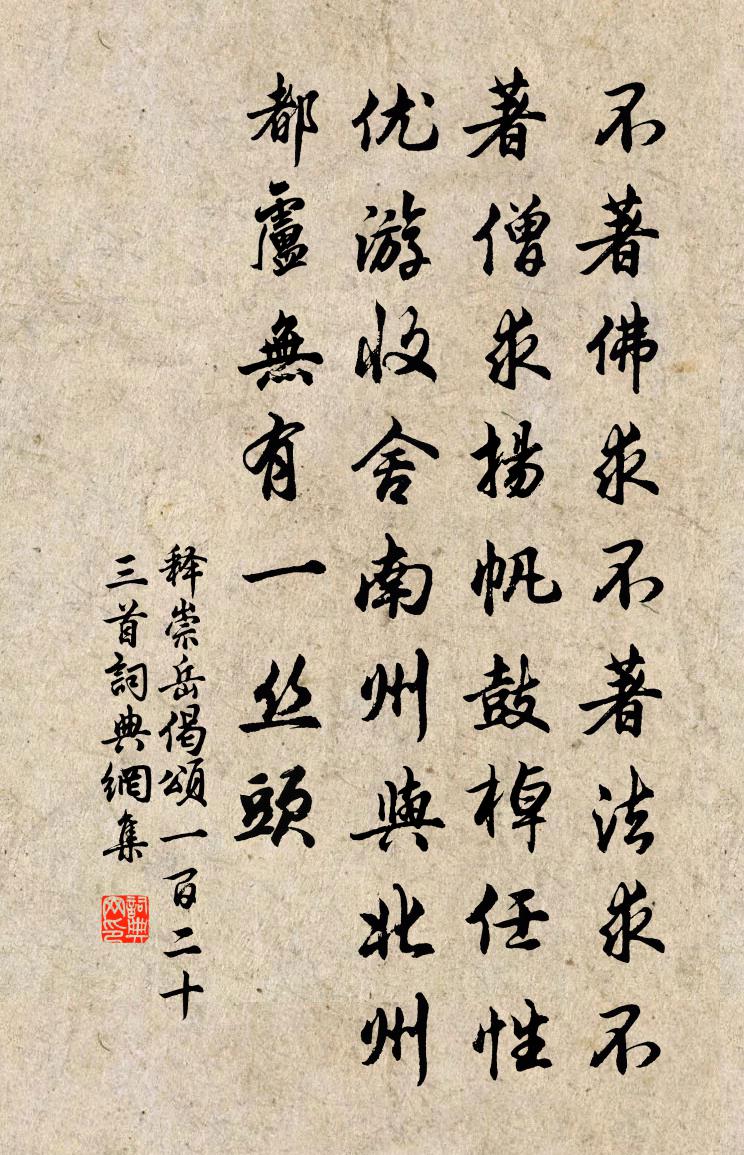 不著佛求不著法求不
著僧求揚帆鼓棹任性
优游收舍南州與北州
都盧無有一丝頭
释崇岳偈頌一百二十
三首詞典網集
詞典网印